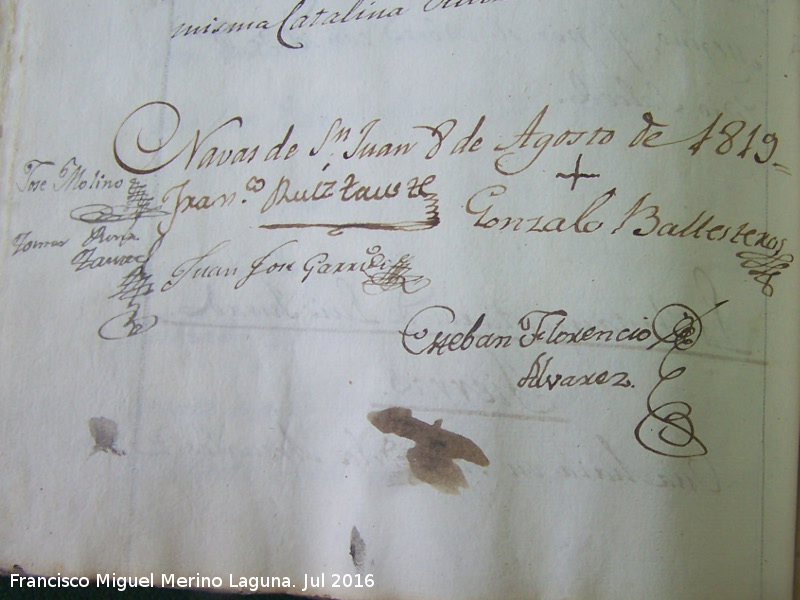 misma Catalina
Navas de Sn Juan 8 de Agosto de 1819
Jose Molino
Fran.co Ruiz Tauste
Gonzalo Ballesteros
Tomas Ruiz
Juan Jose Garrido
Esteban Florencio
Alvarez.
Francisco Miguel Merino Laguna. Jul 2016